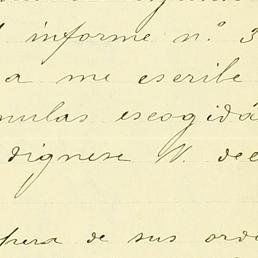 informe n.º 3
a me escribe
mulas escogida
dignese V. dec
pera de sus ord